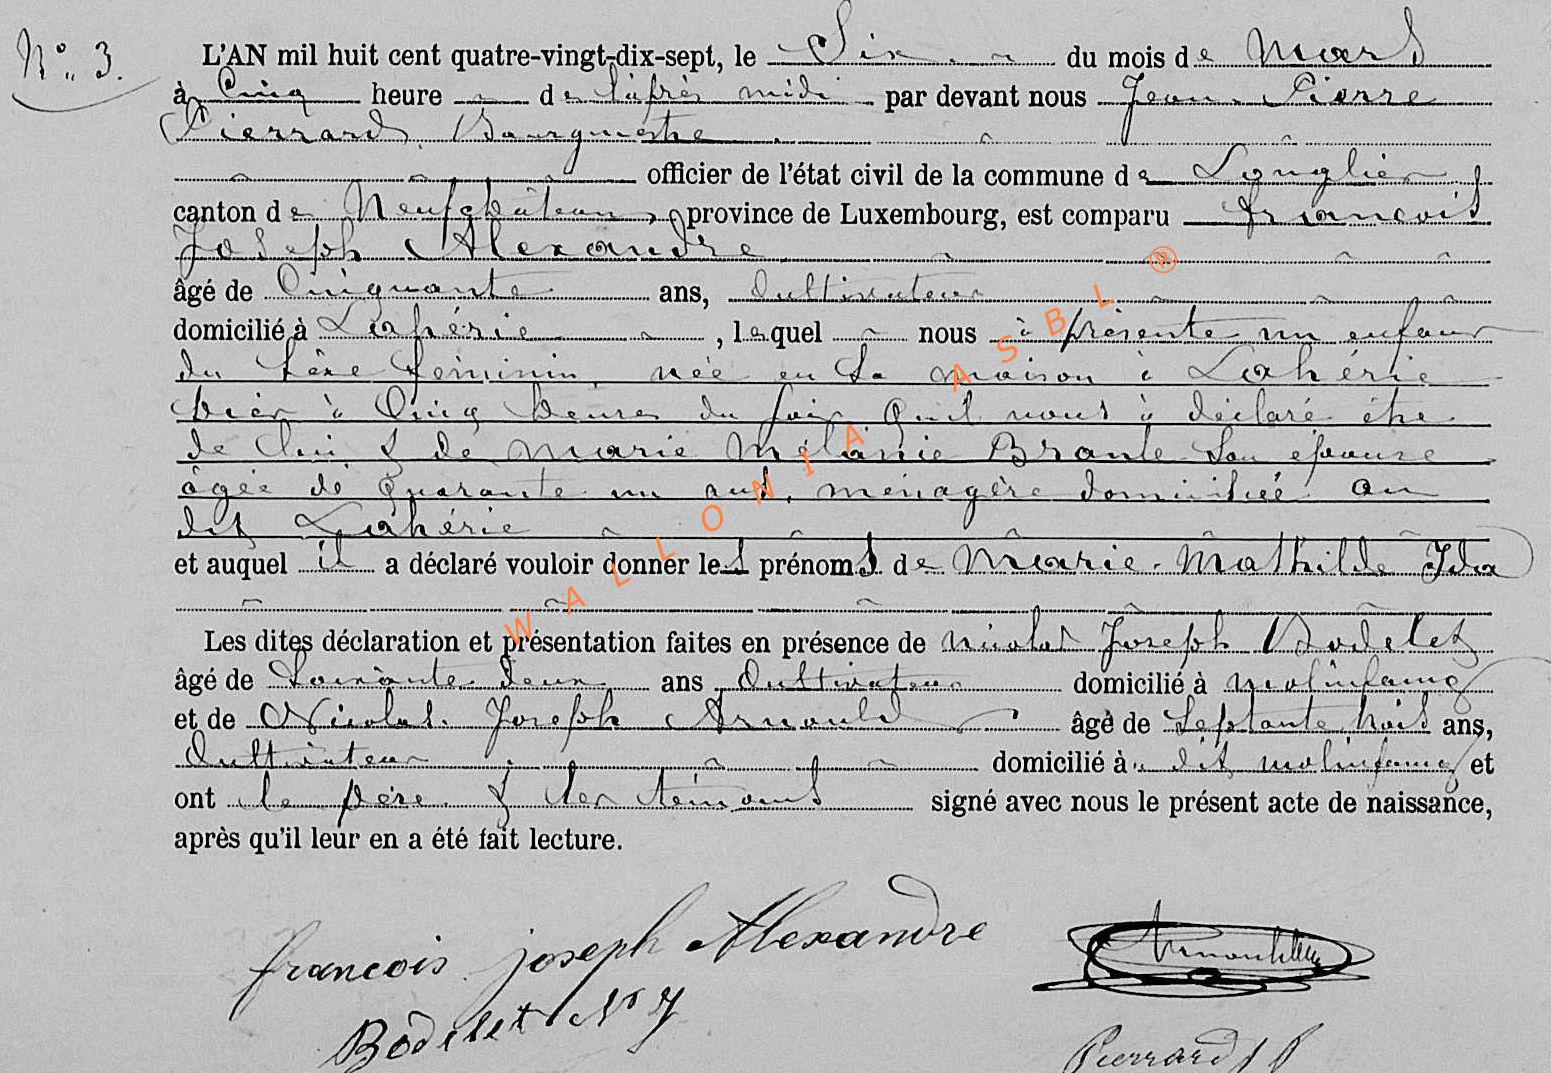 N° 3.
L'AN mil huit cent quatre-vingt-dix-sept, le Six du mois de Mars
à Cinq heure de l'après midi par devant nous Jean Pierre
Pierrard Bourgmestre
officier de l'état civil de la commune de Longlier
canton de Neufchâteau, province de Luxembourg, est comparu françois
Joseph Alexandre
âgé de Cinquante ans, Cultivateur
domicilié à Lahérie, lequel nous à présenté un enfant
du sèxe féminin, née en sa maison à Lahérie
hier à Cinq heures du soir qu'il nous à déclaré être
de lui & de Marie Mélanie Brante son épouse
âgée de quarante un ans, ménagère domiciliée au
dit Lahérie
et auquel il a déclaré vouloir donner les prénoms de Marie Mathilde Ida
Les dites déclaration et présentation faites en présence de Nicolas Joseph Bodelet
âgé de Soixante deux ans Cultivateur domicilié à molinfaing
et de Nicolas Joseph Arnould âgé de Septante trois ans,
Cultivateur domicilié à dit molinfaing et
ont le père & les témoins signé avec nous le présent acte de naissance,
après qu'il leur en a été fait lecture.
françois joseph Alexandre
Bodelet N J
Pierrard J P
WALLONIA ASBL ®